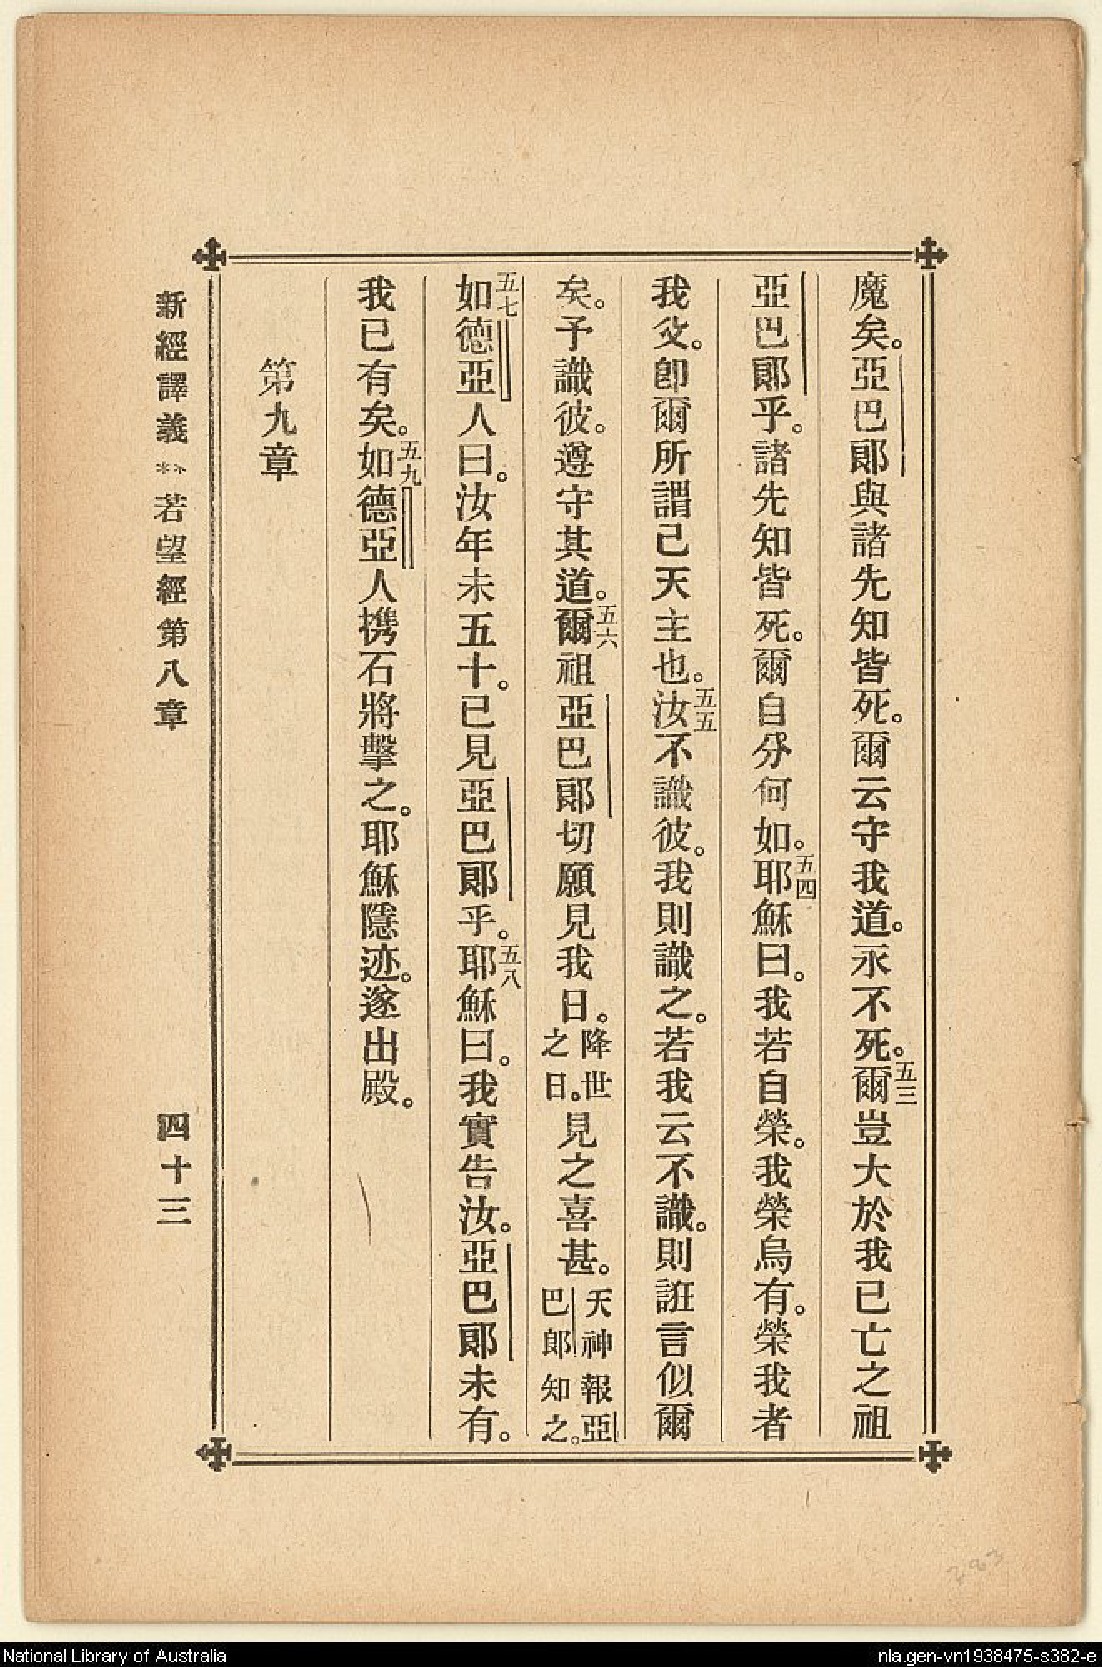 魔矣。亞巴郎與諸先知皆死。爾云守我道。永不死。五三爾豈大於我已亡之祖
亞巴郎乎。諸先知皆死。爾自分何如。五四耶穌曰。我若自榮。我榮烏有。榮我者
我父。卽爾所謂己天主也。五五汝不識彼。我則識之。若我云不識。則誑言似爾
矣。予識彼。遵守其道。五六爾祖亞巴郎切願見我日。降世之日。見之喜甚。天神報亞巴郎知之。
五七如德亞人曰。汝年未五十。已見亞巴郎乎。五八耶穌曰。我實告汝。亞巴郎未有。
我已有矣。五九如德亞人携石將擊之。耶穌隱迹。遂出殿。
第九章
新經譯義 若望經第八章 四十三
National Library of Australia
nla.gen-vn1938475-s382-e